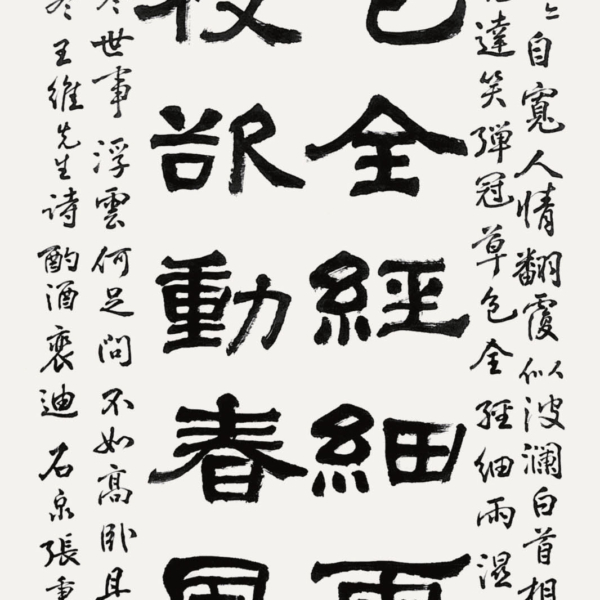 自寬人情翻覆似波瀾白首相
達笑彈冠草色全經細雨濕
色全經細雨
枝欲動春風
世事浮雲何足問不如高卧且
王維先生詩酌酒裴迪石泉張